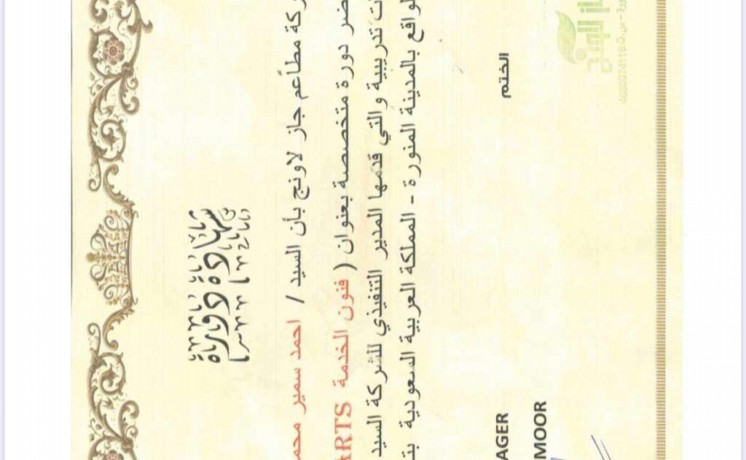 شهادة دورة
ركة مطاعم جاز لاونج بأن السيد / احمد سمير
ضر دورة متخصصة بعنوان ( فنون الخدمة ARTS
ت تدريبية والتي قدمها المدير التنفيذي للشركة السيد
لواقع بالمدينة المنورة - المملكة العربية السعودية
الختم
AGER
MOOR